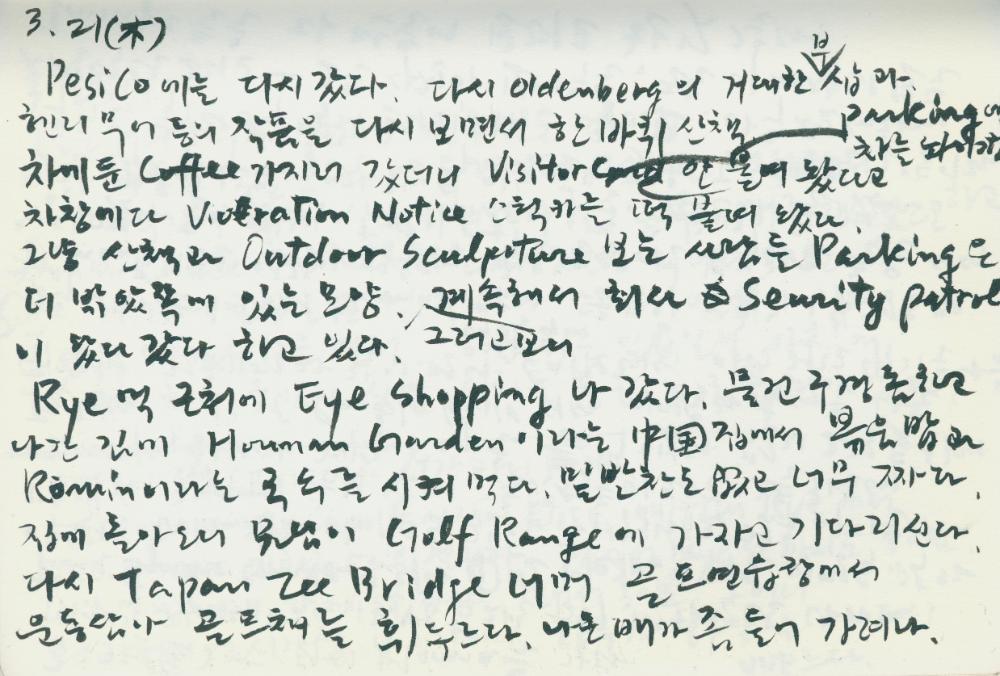 3. 21(木)
Pesico에는 다시 갔다. 다시 oldenberg의 거대한 부삽과
헨리 무어 등의 작품을 다시 보면서 한바퀴 산책
차에 둔 Coffee 가지러 갔더니 Visitor 안 Parking에 차를
붙여 놨다고
차창에다 Violration Notice 스틱카를 떡 붙여 놨다.
그냥 산책과 Outdoor Sculpture 보는 사람들 Parking은
더 밖았쪽에 있는 모양. 계속해서 회사 Security patrol
이 왔다 갔다 하고 있다. 그러고보니
Rye 역 근처에 Eye Shopping 나 갔다. 물건 구경 좀 하고
나간 김에 Hounan Garden이라는 中国집에서 볶음밥과
Romin이라는 국수를 시켜 먹다. 밑반찬도 없고 너무 짜다.
집에 돌아오니 Golf Range에 가자고 기다리신다.
다시 Tapan Zee Bridge 너머 골프연습장에서
운동삼아 골프채를 휘두르다. 나온 배가 좀 들어 가려나.